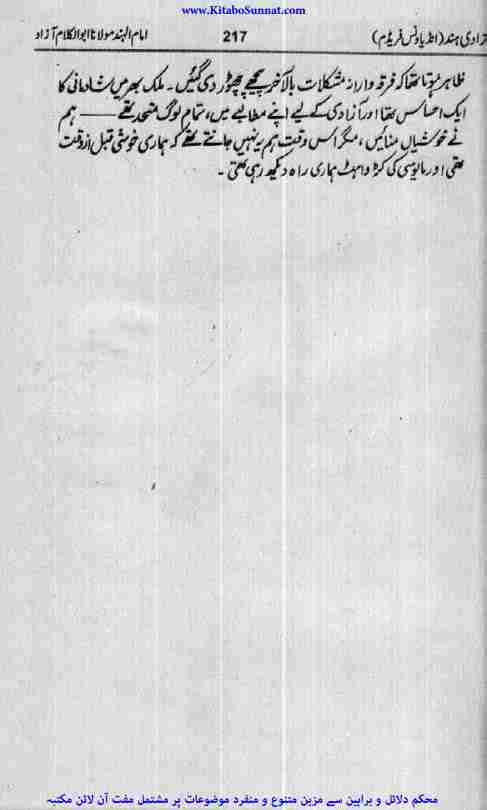 www.KitaboSunnat.com
زادی ہند (انڈیا ونس فریڈم) 217 امام الہند مولانا ابوالکلام آزاد
ظاہر ہوتا تھا کہ فرقہ وارانہ مشکلات بالآخر پیچھے چھوڑ دی گئیں۔ ملک بھر میں شادمانی کا
ایک احساس تھا اور آزادی کے لیے اپنے مطالبے میں، تمام لوگ متحد تھے —— ہم
نے خوشیاں منائیں، مگر اس وقت ہم یہ نہیں جانتے تھے کہ ہماری خوشی قبل از وقت
تھی اور مایوسی کی کڑواہٹ ہماری راہ دیکھ رہی تھی۔
محکم دلائل و براہین سے مزین متنوع و منفرد موضوعات پر مشتمل مفت آن لائن مکتبہ